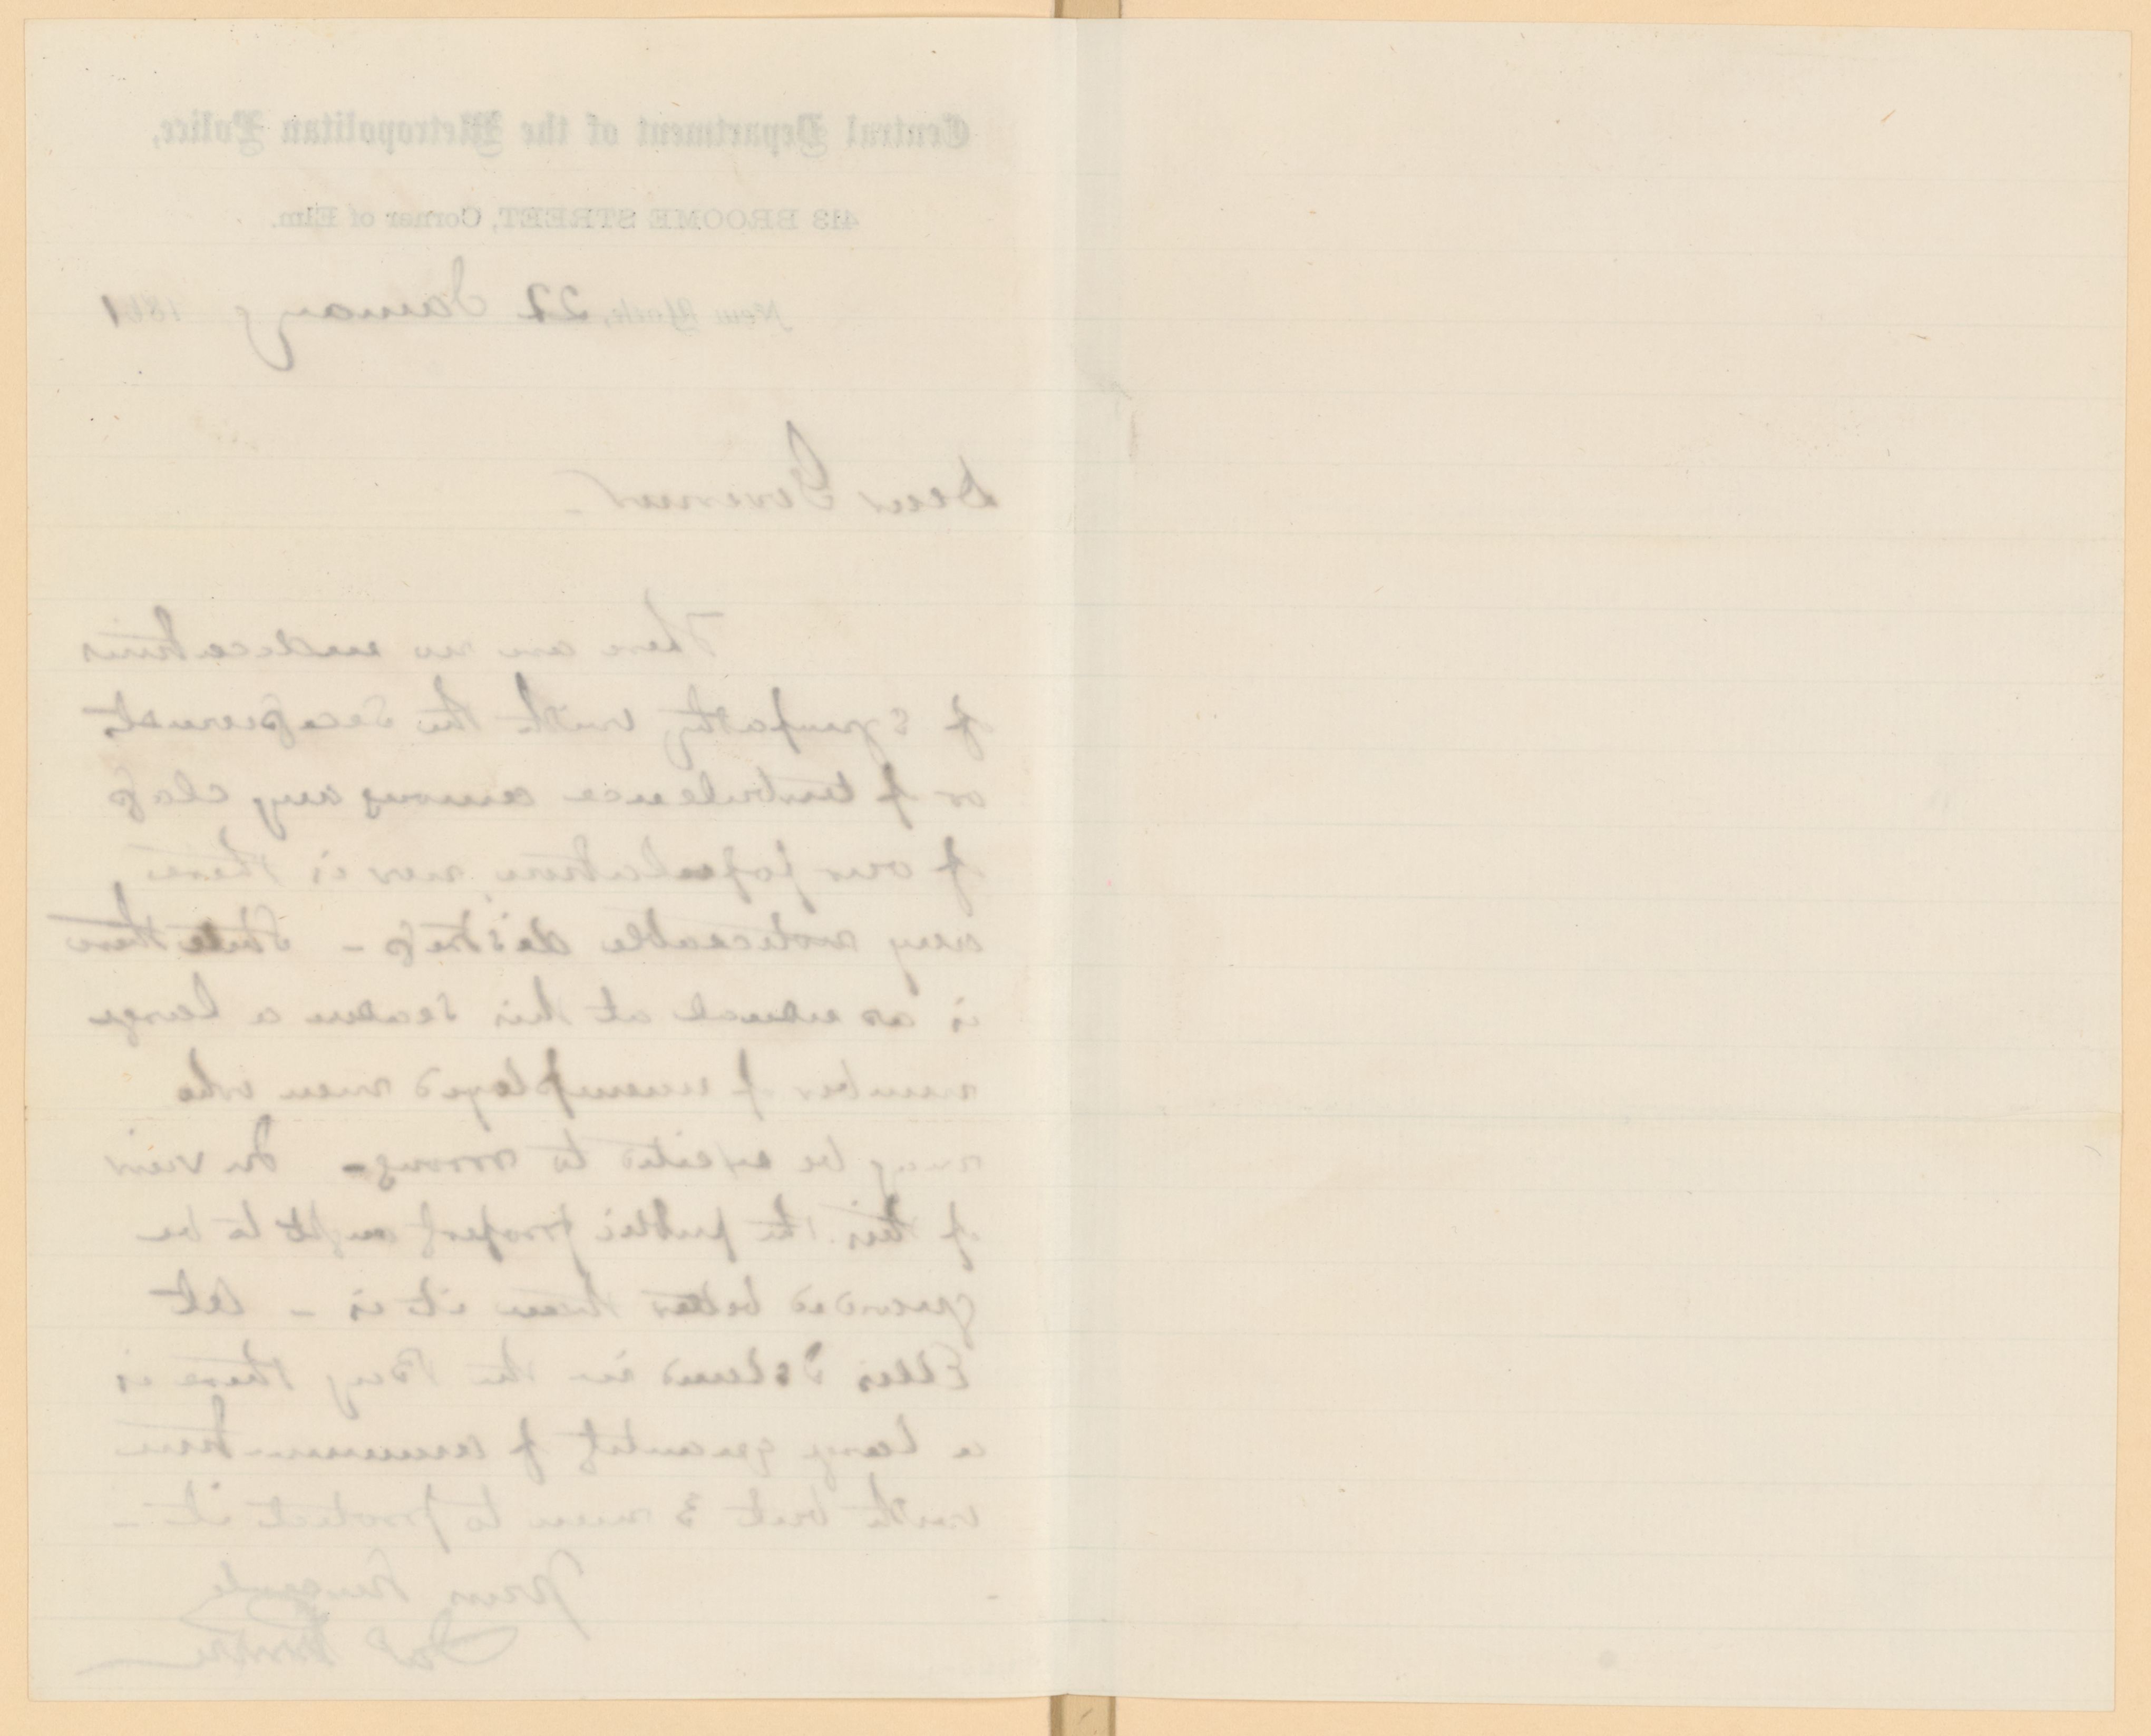 Central Department of the Metropolitan Police,
413 BROOME STREET, Corner of Elm.
New York, 22 January 1861
Dear Governor -
There are no indications
of sympathy with the secessionists
or of turbulence among any class
of our population, nor is there
any noticeable distress - Still there
is as usual at this season a large
number of unemployed men who
may be excited to wrong - In view
of this the public property ought to be
guarded better than it is - At
Ellis Island in the Bay there is
a large quantity of ammunition
with but 3 men to protect it -
Yours truly